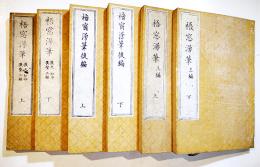 梧窓漫筆
上
梧窓漫筆
下
梧窓漫筆後編
上
梧窓漫筆後編
下
梧窓漫筆三編
上
梧窓漫筆三編
下